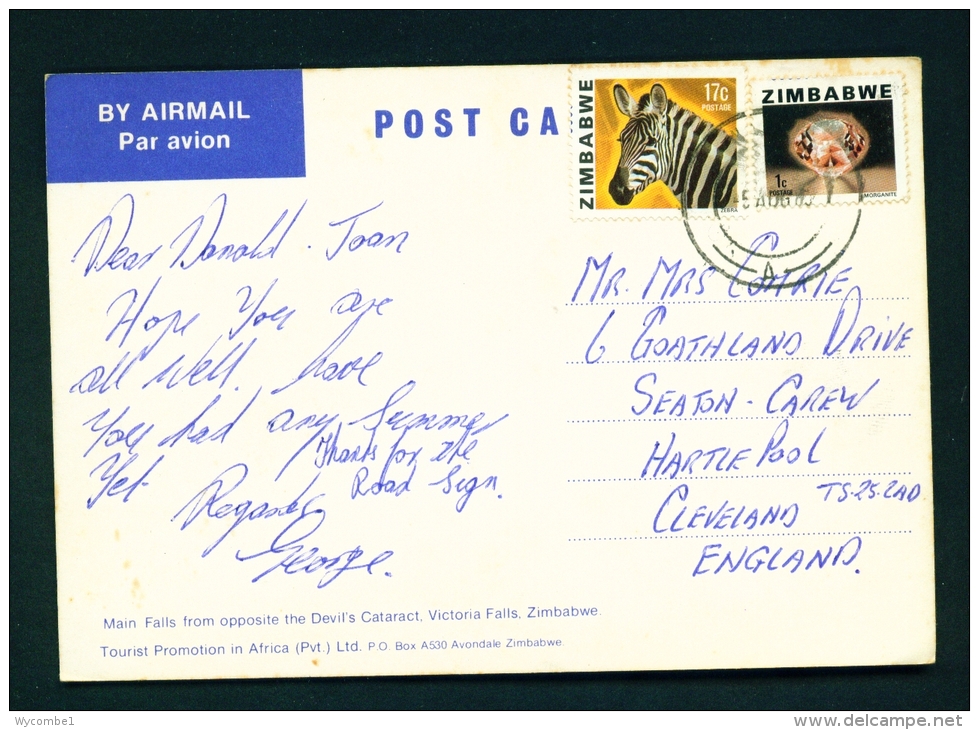 BY AIRMAIL
Par avion
POST CA
ZIMBABWE
17c
POSTAGE
ZEBRA
ZIMBABWE
1c
POSTAGE
MORGANITE
-5 AUG 82
A
Dear Donald. Joan
Hope You are
all well. have
You had any Summer
Yet
Thanks for the
Road Sign.
Regards
George.
MR. MRS COMRIE
6 GOATHLAND DRIVE
SEATON-CAREW
HARTLE POOL
TS.25.2AD
CLEVELAND
ENGLAND.
Main Falls from opposite the Devil's Cataract, Victoria Falls, Zimbabwe.
Tourist Promotion in Africa (Pvt.) Ltd. P.O. Box A530 Avondale Zimbabwe.
Wycombe1
www.delcampe.net